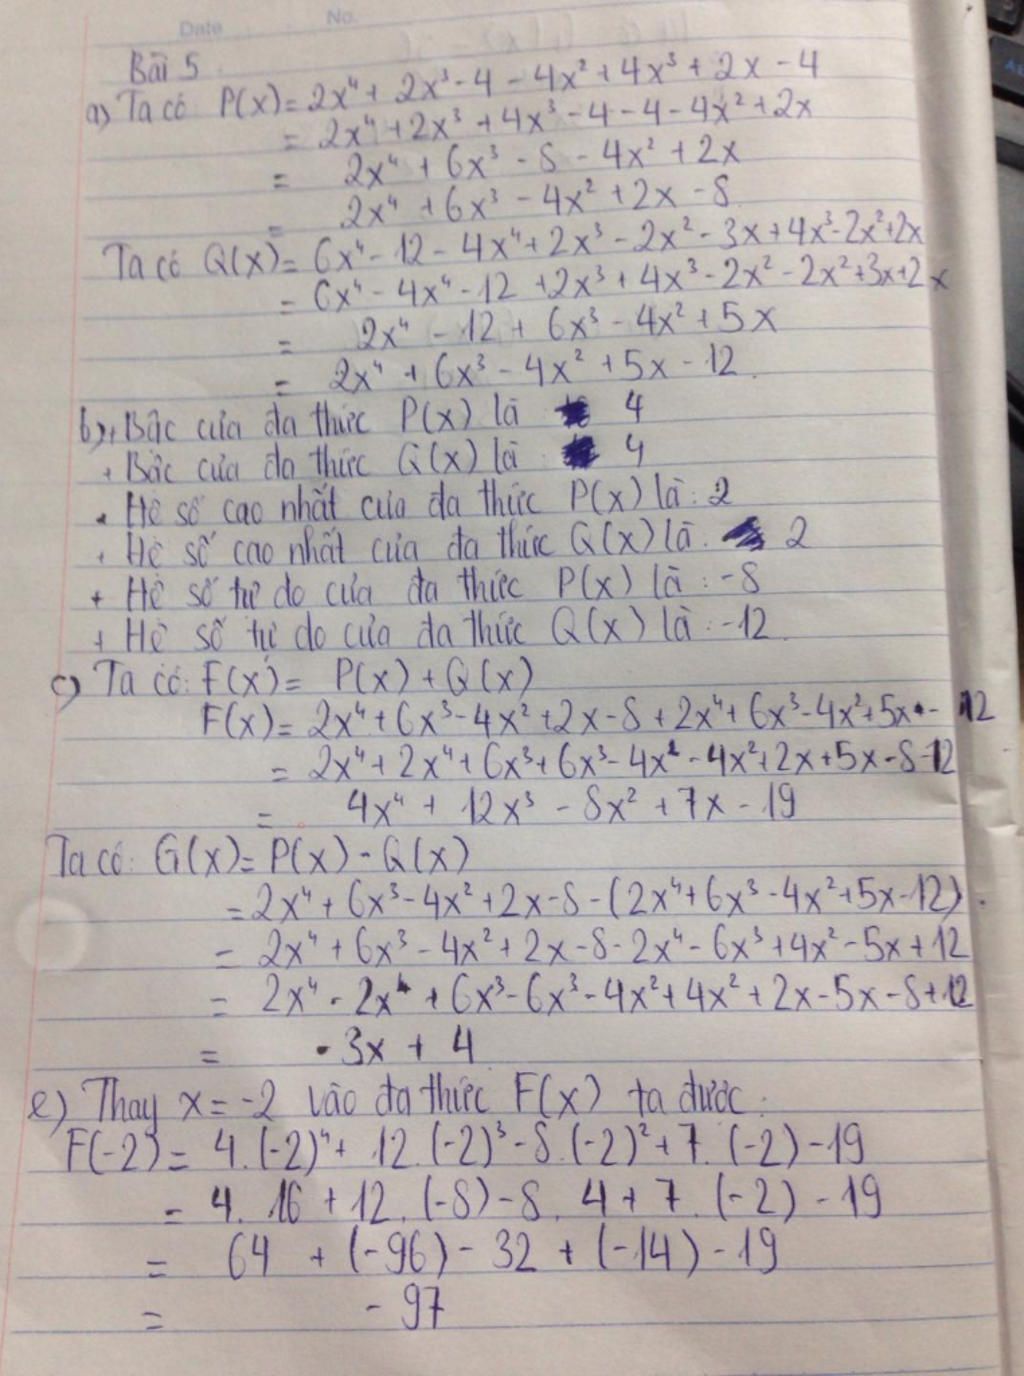 Date No.
Bài 5
a) Ta có P(x) = 2x⁴ + 2x³ - 4 - 4x² + 4x³ + 2x - 4
= 2x⁴ + 2x³ + 4x³ - 4 - 4 - 4x² + 2x
= 2x⁴ + 6x³ - 8 - 4x² + 2x
= 2x⁴ + 6x³ - 4x² + 2x - 8
Ta có Q(x) = 6x⁴ - 12 - 4x⁴ + 2x³ - 2x² - 3x + 4x³ - 2x² + 2x
= 6x⁴ - 4x⁴ - 12 + 2x³ + 4x³ - 2x² - 2x² + 3x + 2x
= 2x⁴ - 12 + 6x³ - 4x² + 5x
= 2x⁴ + 6x³ - 4x² + 5x - 12
b) + Bậc của đa thức P(x) là 4
+ Bậc của đa thức Q(x) là 4
+ Hệ số cao nhất của đa thức P(x) là: 2
+ Hệ số cao nhất của đa thức Q(x) là: 2
+ Hệ số tự do của đa thức P(x) là: -8
+ Hệ số tự do của đa thức Q(x) là: -12
c) Ta có: F(x) = P(x) + Q(x)
F(x) = 2x⁴ + 6x³ - 4x² + 2x - 8 + 2x⁴ + 6x³ - 4x² + 5x - 12
= 2x⁴ + 2x⁴ + 6x³ + 6x³ - 4x² - 4x² + 2x + 5x - 8 - 12
= 4x⁴ + 12x³ - 8x² + 7x - 19
Ta có: G(x) = P(x) - Q(x)
= 2x⁴ + 6x³ - 4x² + 2x - 8 - (2x⁴ + 6x³ - 4x² + 5x - 12)
= 2x⁴ + 6x³ - 4x² + 2x - 8 - 2x⁴ - 6x³ + 4x² - 5x + 12
= 2x⁴ - 2x⁴ + 6x³ - 6x³ - 4x² + 4x² + 2x - 5x - 8 + 12
= - 3x + 4
e) Thay x = -2 vào đa thức F(x) ta được:
F(-2) = 4.(-2)⁴ + 12.(-2)³ - 8.(-2)² + 7.(-2) - 19
= 4. 16 + 12. (-8) - 8. 4 + 7. (-2) - 19
= 64 + (-96) - 32 + (-14) - 19
= - 97